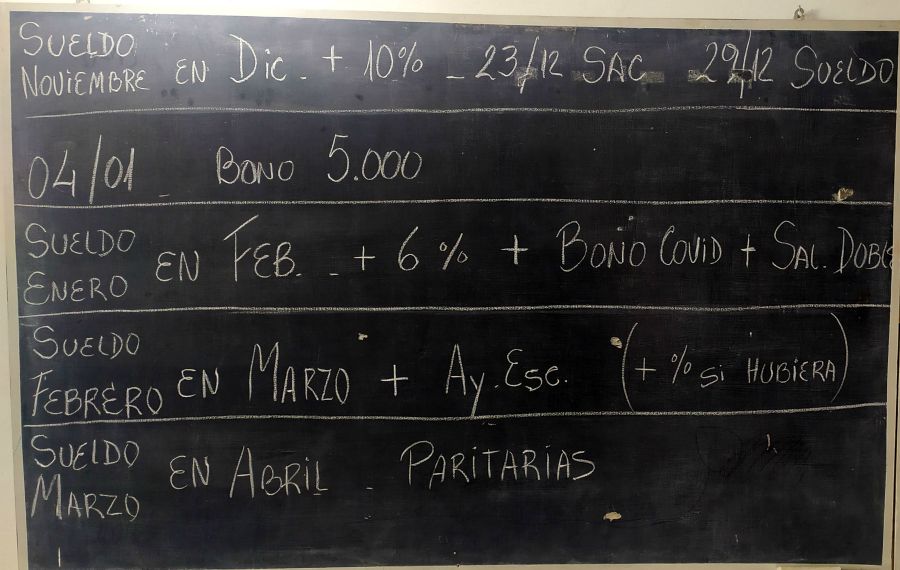 SUELDO NOVIEMBRE EN DIC. + 10% - 23/12 SAC 29/12 SUELDO
04/01 - BONO 5.000
SUELDO ENERO EN FEB. - + 6% + BONO COVID + SAL. DOBLE
SUELDO FEBRERO EN MARZO + AY. ESC. (+ % SI HUBIERA)
SUELDO MARZO EN ABRIL - PARITARIAS